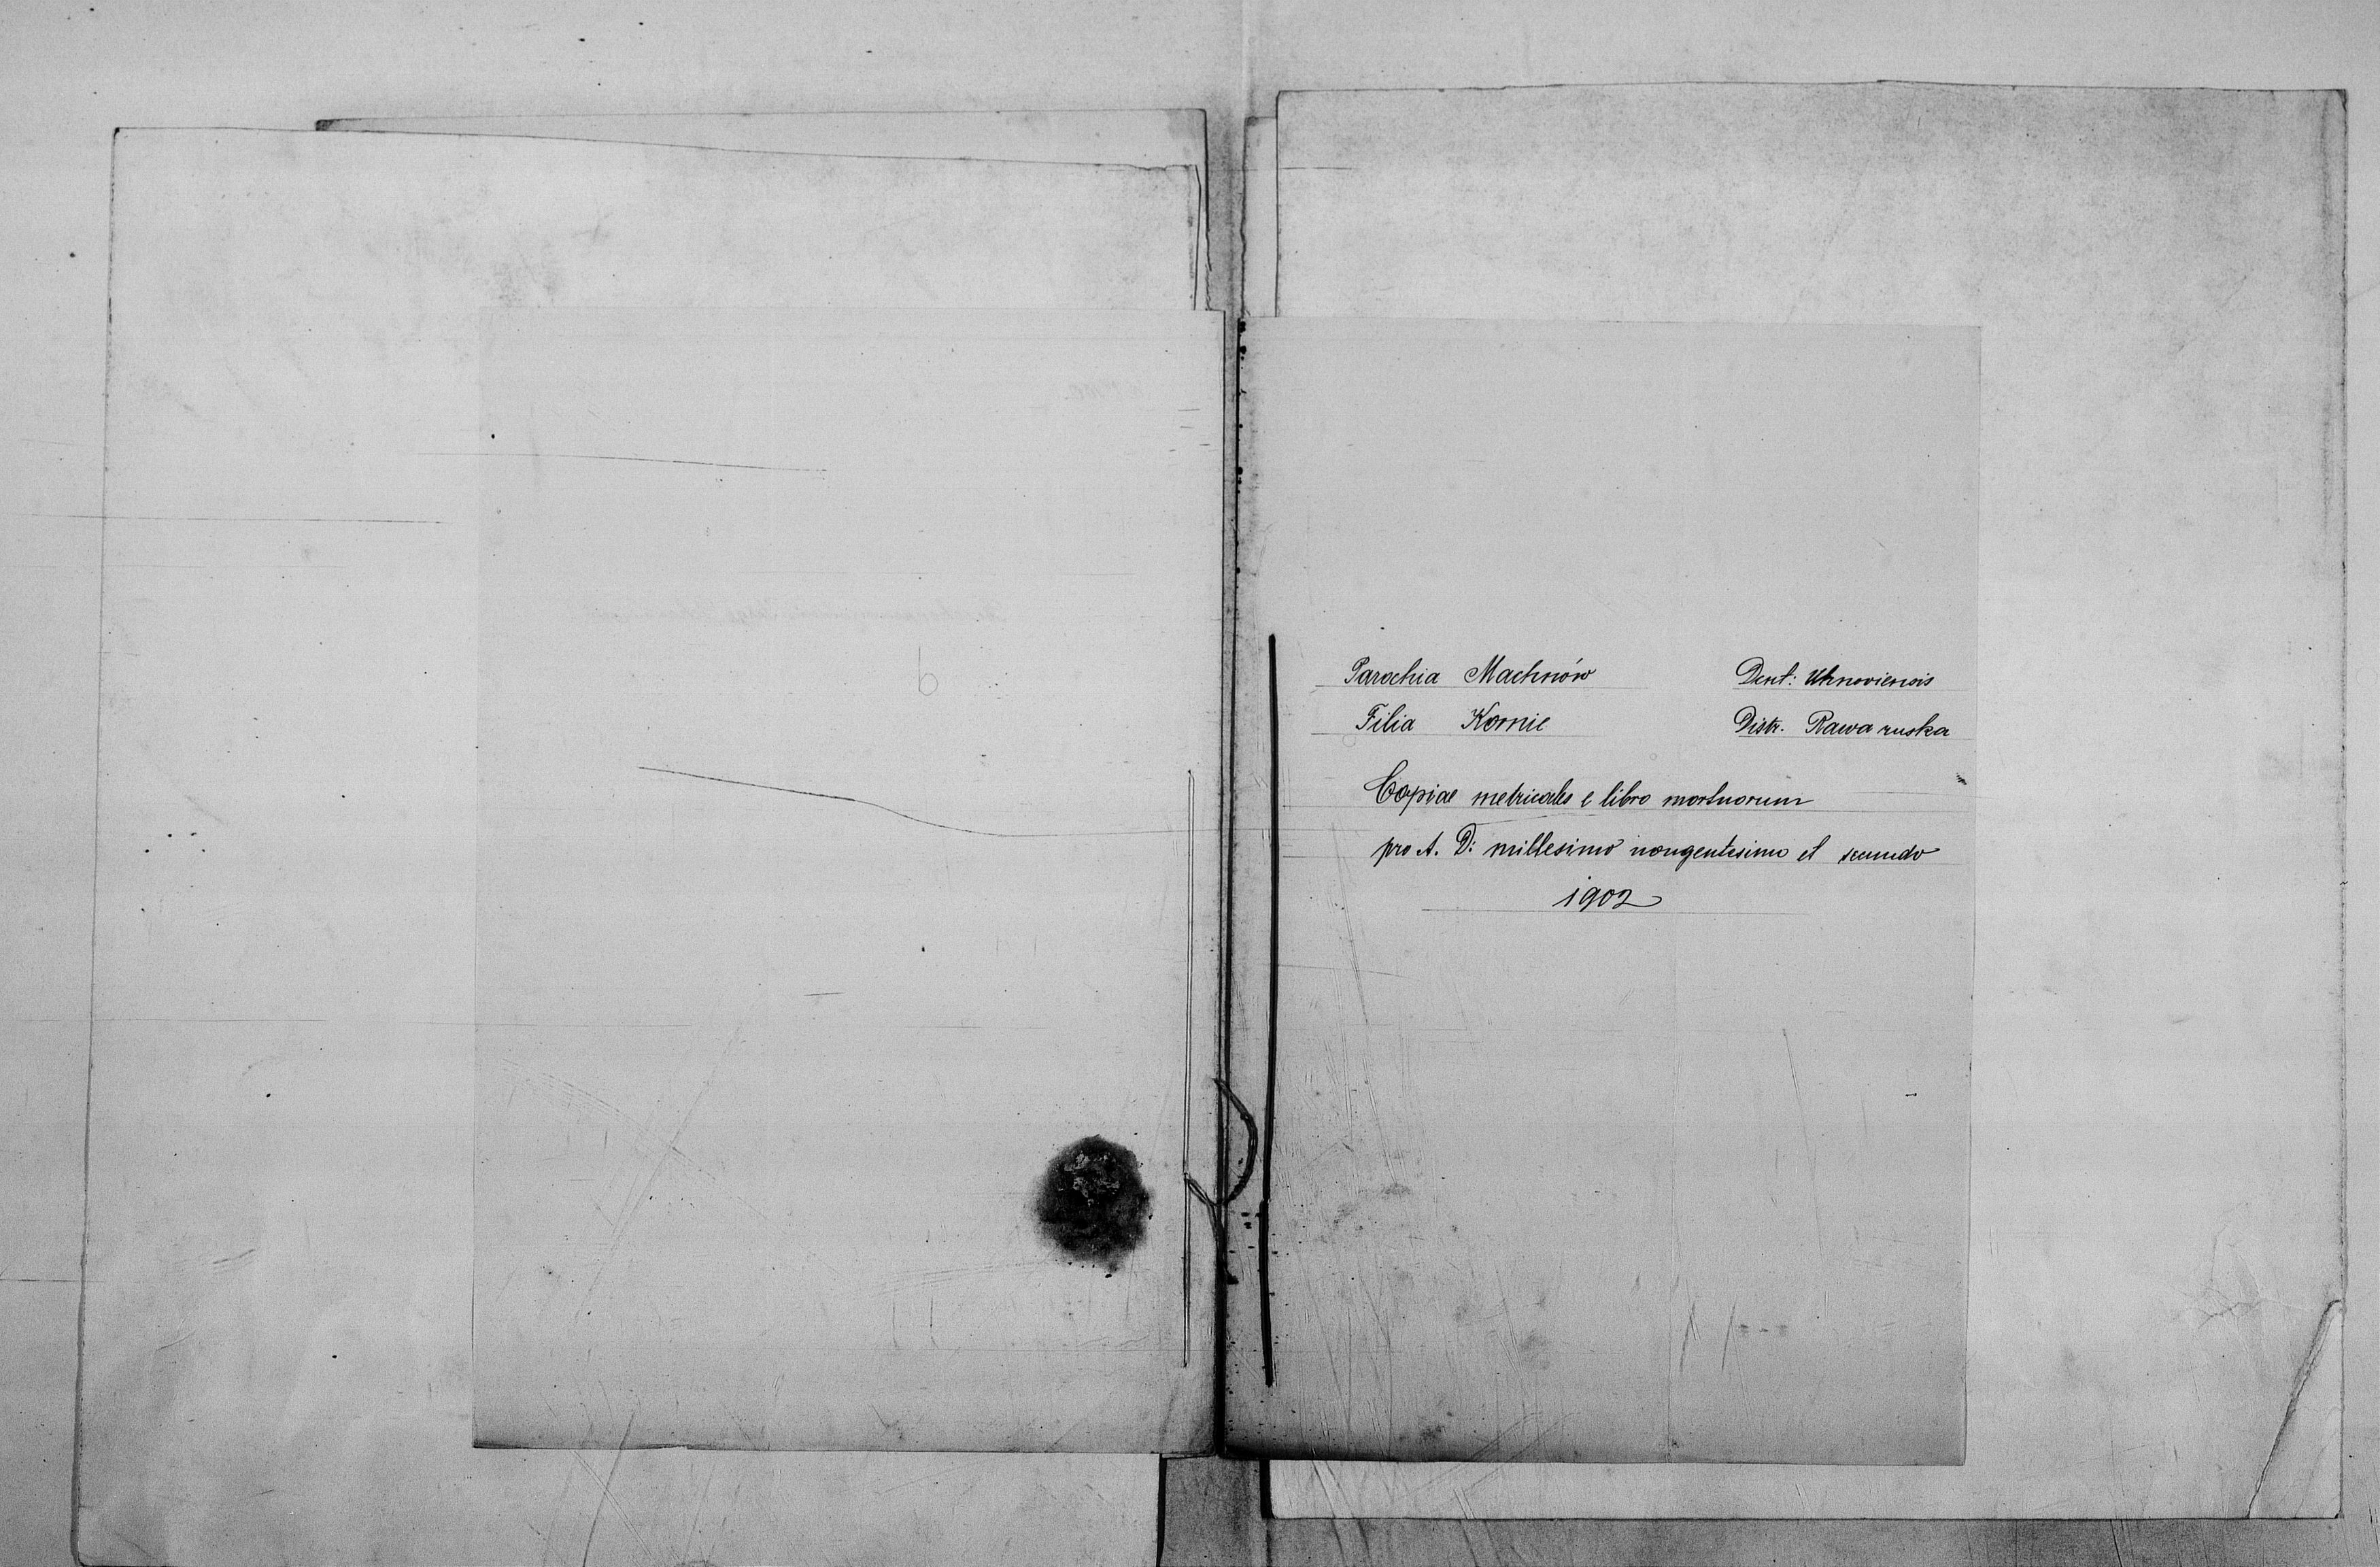 Parochia Machnów Dcnt: Uhnoviensis
Filia Kornie Distr. Rawa ruska
Copiae metricales e libro mortuorum
pro A. D: millesimo nongentesimo et secundo
1902